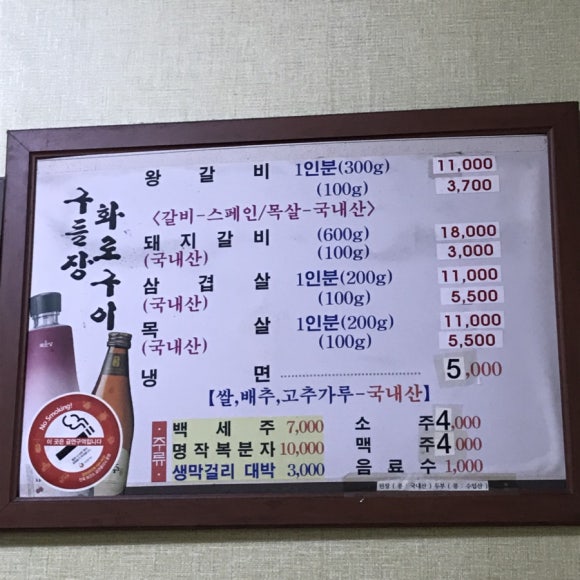 구들장
화로구이
왕 갈 비 1인분(300g) 11,000
(100g) 3,700
<갈비-스페인/목살-국내산>
돼지갈비 (600g) 18,000
(국내산) (100g) 3,000
삼 겹 살 1인분(200g) 11,000
(국내산) (100g) 5,500
목 살 1인분(200g) 11,000
(국내산) (100g) 5,500
냉 면 5,000
【쌀,배추,고추가루-국내산】
·주류·
백 세 주 7,000 소 주 4,000
명작복분자 10,000 맥 주 4,000
생막걸리 대박 3,000 음 료 수 1,000
된장 ( 콩 : 국내산 ) 두부 ( 콩 : 수입산 )
No Smoking!
이 곳은 금연구역입니다